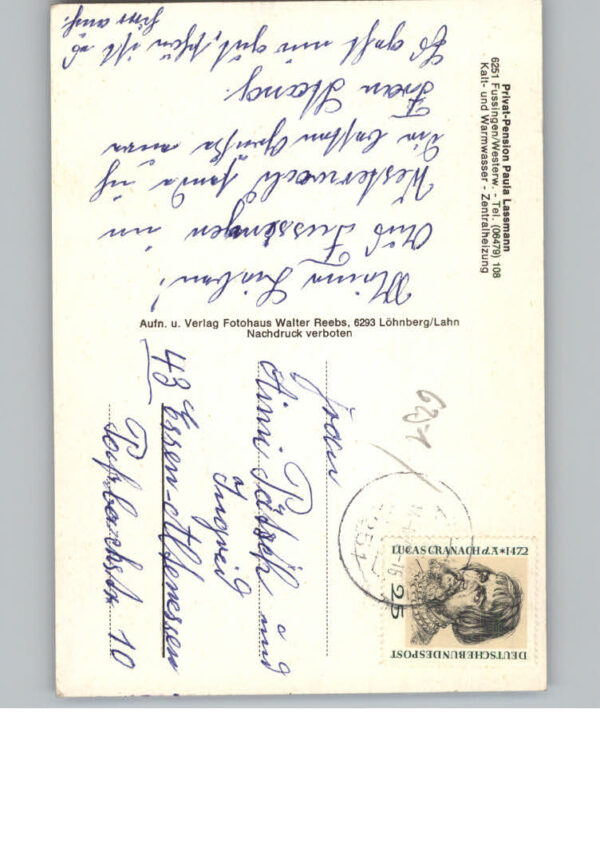 Privat-Pension Paula Lassmann
6251 Fussingen/Westerw. - Tel. (06479) 108
Kalt- und Warmwasser - Zentralheizung
Meine Lieben!
Aus Fussingen im
Westerwald sende ich
die besten Grüße eure
Frau Stang.
Es geht mir gut, schön ist es
hier auch.
Aufn. u. Verlag Fotohaus Walter Reebs, 6293 Löhnberg/Lahn
Nachdruck verboten
6251
DEUTSCHE BUNDESPOST
25
LUCAS CRANACH D.Ä.*1472
Frau
Änni und
Ingrid
43 Essen-Altenessen
10